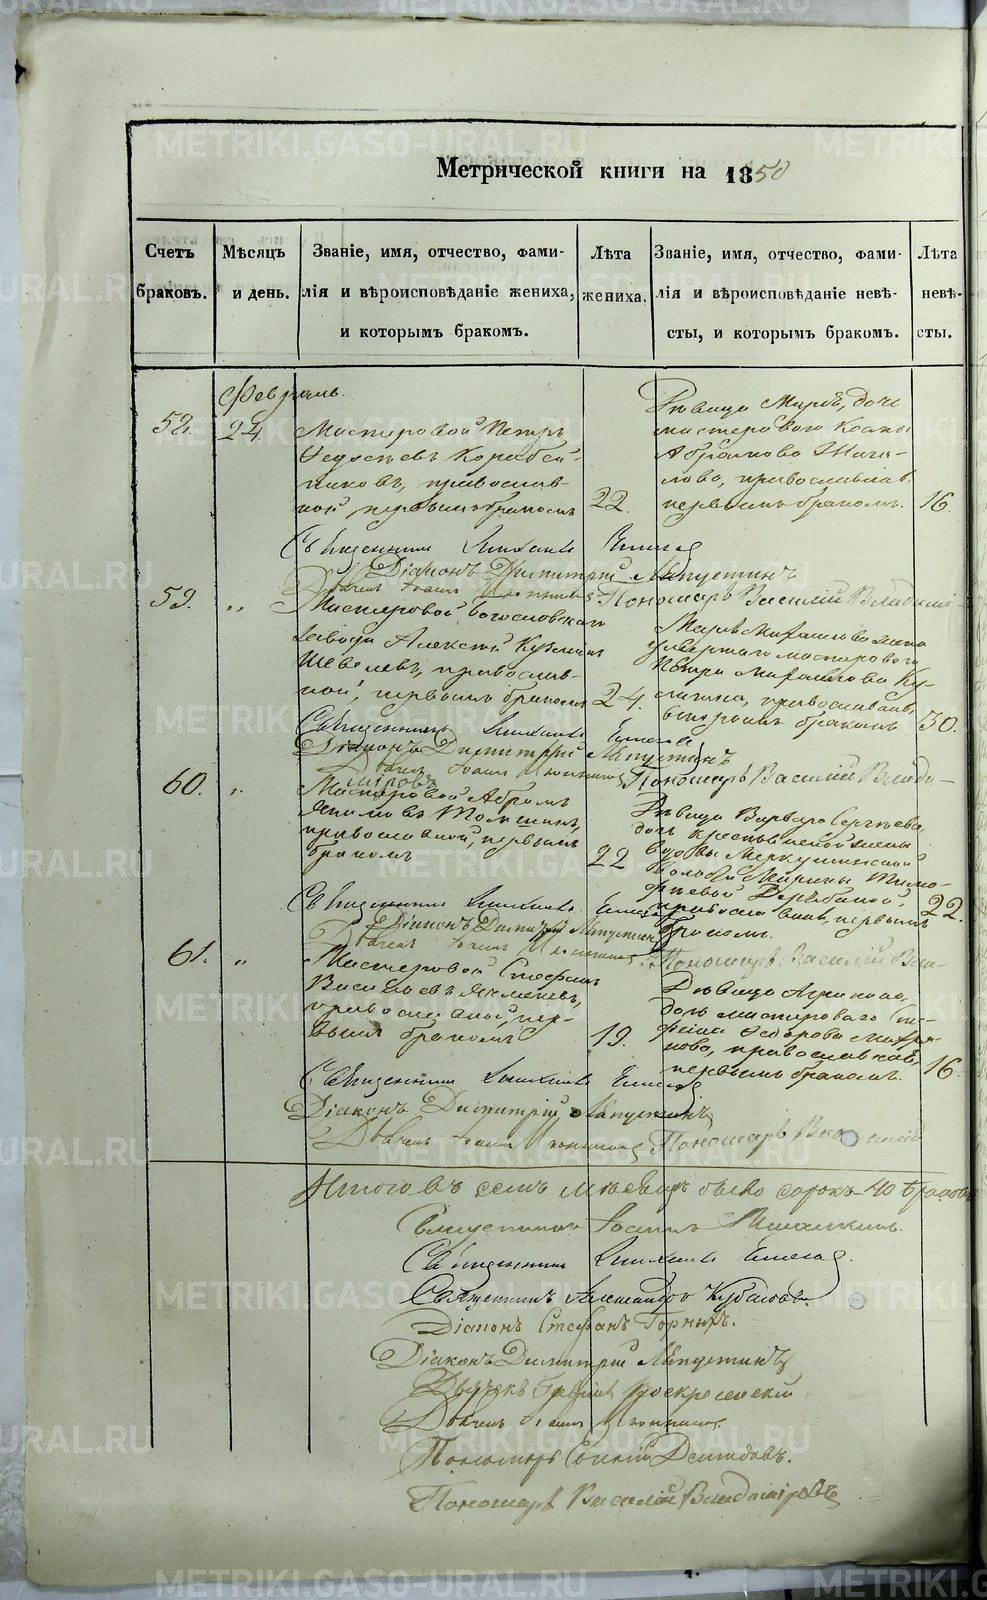 Метрической книги на 1850
Счетъ браковъ.
Мѣсяцъ и день.
Званіе, имя, отчество, фами-
лія и вѣроисповѣданіе жениха,
и которымъ бракомъ.
Лѣта жениха.
Званіе, имя, отчество, фами-
лія и вѣроисповѣданіе невѣ-
сты, и которымъ бракомъ.
Лѣта невѣ-
сты.
Февраль.
58.
24
Мастеровой Петръ
Коробей-
никовъ, православ-
ной первымъ бракомъ
22.
Дѣвица Марѳа, дочь
мастероваго Козмы
Абрамова
лова, православная,
первымъ бракомъ.
16.
Священникъ Михаилъ
Діаконъ Димитрій Лапустинъ
Дьячекъ Іоаннъ
Пономарь Василій Владимі-
59.
„
Мастеровой Богословскаго
завода Алексѣй Кузминъ
Шевелевъ, православ-
ной, первымъ бракомъ
24.
Марѳа Михайлова жена
умершаго мастероваго
Петра Михайлова Ку-
православная,
вторымъ бракомъ
30.
Священникъ Михаилъ
Діаконъ Димитрій Лапустинъ
Дьячекъ Іоаннъ
Пономарь Василій Влади-
міровъ
60.
„
Мастеровой Абрамъ
Якимовъ
православной, первымъ
бракомъ
22
Дѣвица Варвара Сергѣева,
дочь крестьянской жены
вдовы Меркушинской
волости Марины Тимо-
ѳеевой
православная, первымъ
бракомъ.
22.
Священникъ Михаилъ
Діаконъ Димитрій Лапустинъ
Дьячекъ Іоаннъ
Пономарь Василій Вла-
61.
„
Мастеровой Стефанъ
Васильевъ Ячменевъ,
православной, пер-
вымъ бракомъ
19.
Дѣвица
дочь мастероваго Сте-
фана Ѳедорова
нова, православная,
первымъ бракомъ.
16.
Священникъ Михаилъ
Діаконъ Димитрій Лапустинъ
Дьячекъ Іоаннъ
Пономарь Василій
Итого въ семъ мѣсяцѣ было сорокъ 40 браковъ
Священникъ Іоаннъ
Священникъ Михаилъ
Священникъ Александръ
Діаконъ Стефанъ Горныхъ.
Діаконъ Димитрій Лапустинъ
Дьячекъ Воскресенскій
Дьячекъ Іоаннъ
Пономарь Демидовъ.
Пономарь Василій Владиміровъ
METRIKI.GASO-URAL.RU